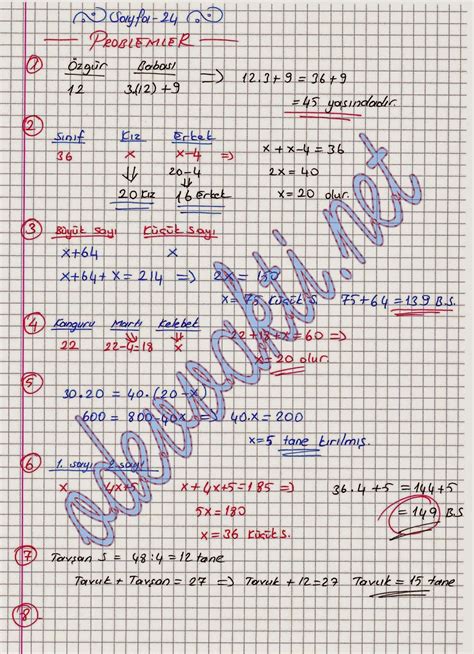 Sayfa-24
PROBLEMLER
1 Özgür Babası
12 3.(12)+9 => 12.3+9=36+9
=45 yaşındadır.
2 Sınıf Kız Erkek
36 x x-4 => x+x-4=36
20-4 2x=40
20 Kız 16 Erkek x=20 olur.
3 Büyük Sayı Küçük Sayı
x+64 x
x+64+x=214 => 2x=150
x=75 Küçük S. 75+64=139 B.S.
4 Kanguru Martı Kelebek
22 22-4=18 x 22+18+x=60 =>
x=20 olur.
5
30.20=40.(20-x)
600=800-40x => 40.x=200
x=5 tane kırılmış.
6 1. sayı 2. sayı
x 4x+5 x+4x+5=185 => 36.4+5=144+5
5x=180 =149 B.S
x=36 Küçük S.
7 Tavşan S=48:4=12 tane
Tavuk+Tavşan=27 => Tavuk+12=27 Tavuk=15 tane
8
odevvakti.net